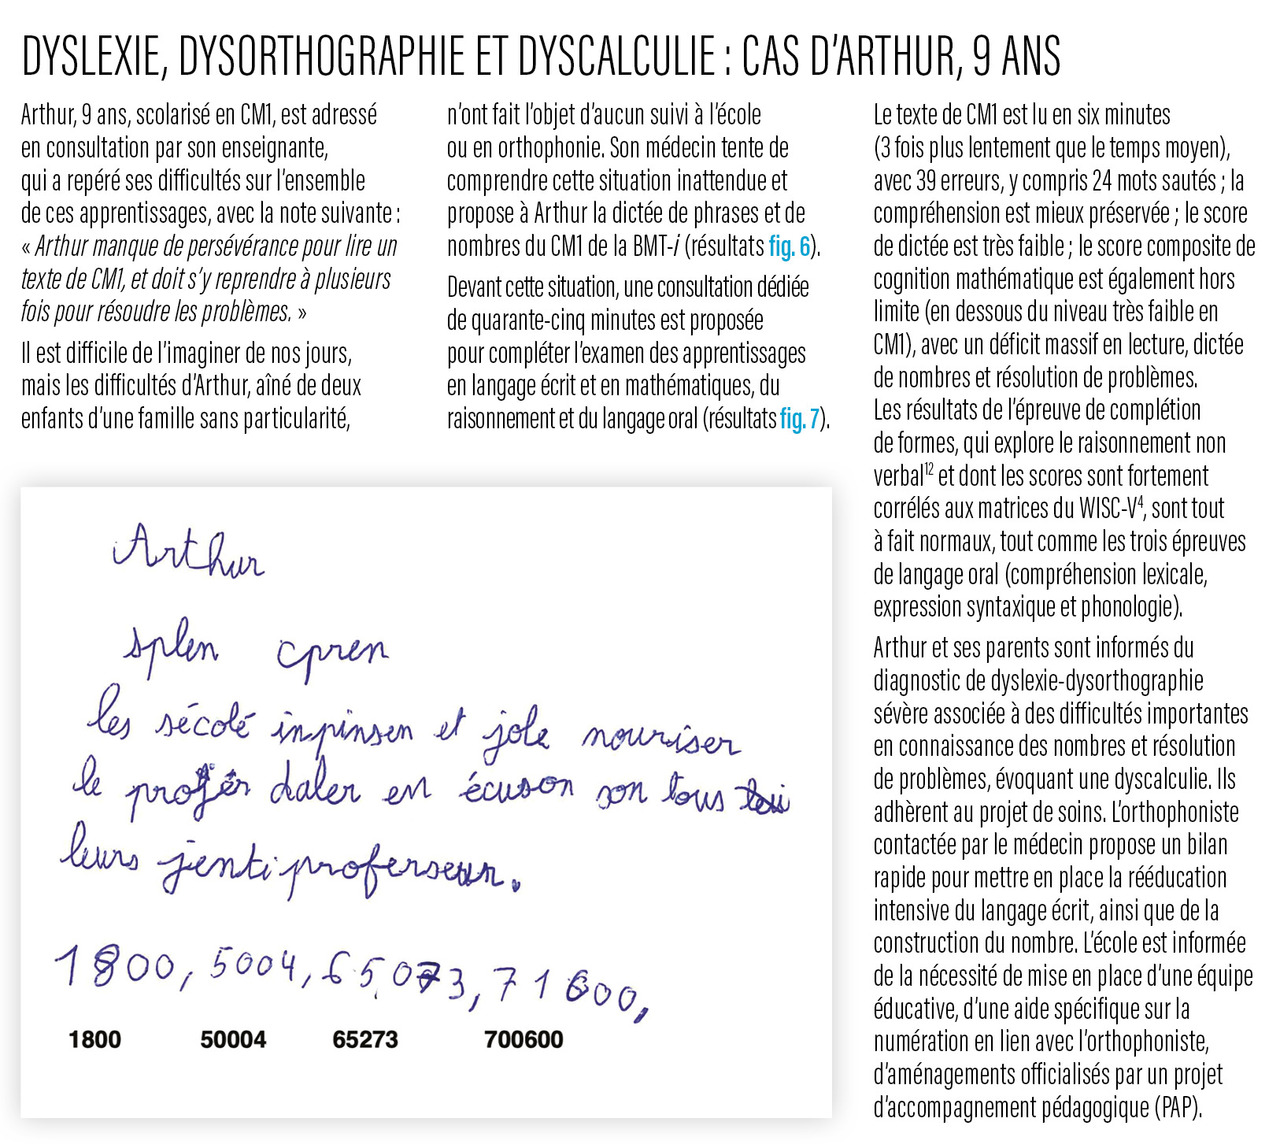 DYSLEXIE, DYSORTHOGRAPHIE ET DYSCALCULIE : CAS D’ARTHUR, 9 ANS
Arthur, 9 ans, scolarisé en CM1, est adressé
en consultation par son enseignante,
qui a repéré ses difficultés sur l’ensemble
de ces apprentissages, avec la note suivante :
« Arthur manque de persévérance pour lire un
texte de CM1, et doit s’y reprendre à plusieurs
fois pour résoudre les problèmes. »
Il est difficile de l’imaginer de nos jours,
mais les difficultés d’Arthur, aîné de deux
enfants d’une famille sans particularité,
n’ont fait l’objet d’aucun suivi à l’école
ou en orthophonie. Son médecin tente de
comprendre cette situation inattendue et
propose à Arthur la dictée de phrases et de
nombres du CM1 de la BMT-i (résultats fig. 6).
Devant cette situation, une consultation dédiée
de quarante-cinq minutes est proposée
pour compléter l’examen des apprentissages
en langage écrit et en mathématiques, du
raisonnement et du langage oral (résultats fig. 7).
Le texte de CM1 est lu en six minutes
(3 fois plus lentement que le temps moyen),
avec 39 erreurs, y compris 24 mots sautés ; la
compréhension est mieux préservée ; le score
de dictée est très faible ; le score composite de
cognition mathématique est également hors
limite (en dessous du niveau très faible en
CM1), avec un déficit massif en lecture, dictée
de nombres et résolution de problèmes.
Les résultats de l’épreuve de complétion
de formes, qui explore le raisonnement non
verbal12 et dont les scores sont fortement
corrélés aux matrices du WISC-V4, sont tout
à fait normaux, tout comme les trois épreuves
de langage oral (compréhension lexicale,
expression syntaxique et phonologie).
Arthur et ses parents sont informés du
diagnostic de dyslexie-dysorthographie
sévère associée à des difficultés importantes
en connaissance des nombres et résolution
de problèmes, évoquant une dyscalculie. Ils
adhèrent au projet de soins. L’orthophoniste
contactée par le médecin propose un bilan
rapide pour mettre en place la rééducation
intensive du langage écrit, ainsi que de la
construction du nombre. L’école est informée
de la nécessité de mise en place d’une équipe
éducative, d’une aide spécifique sur la
numération en lien avec l’orthophoniste,
d’aménagements officialisés par un projet
d’accompagnement pédagogique (PAP).
Arthur
splen cpren
les sécolé inpinsen et jole nouriser
le projer daler en écuson son tous
leurs jenti proferseur.
1800, 5004, 65073, 71600,
1800 50004 65273 700600